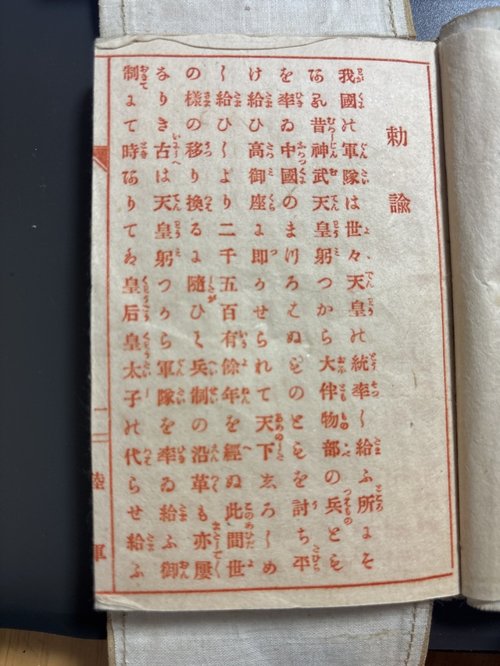 勅諭
我國の軍隊は世々天皇の統率し給ふ所にそ
ある昔神武天皇躬つから大伴物部の兵とも
を率ゐ中國のまつろはぬものともを討ち平
け給ひ高御座に即かせられて天下しろしめ
し給ひしより二千五百有餘年を經ぬ此間世
の樣の移り換るに隨ひて兵制の沿革も亦屢
なりき古は天皇躬つから軍隊を率ゐ給ふ御
制にて時ありては皇后皇太子の代らせ給ふ
一 陸軍